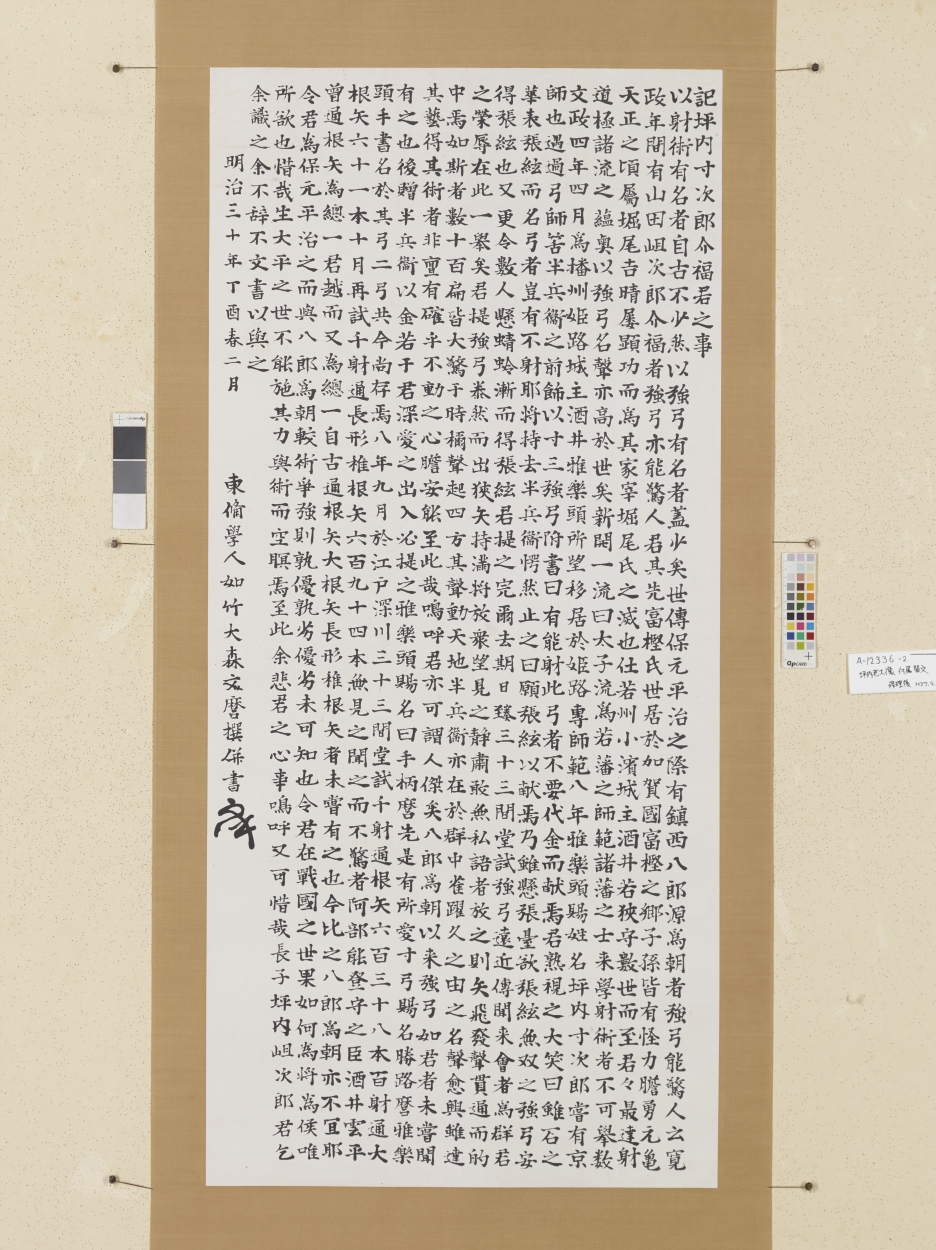 記坪内寸次郎介福君之事
以射術有名者自古不少然以強弓有名者蓋少矣世傳保元平治之際有鎮西八郎源為朝者強弓能驚人云寛
政年間有山田岨次郎介福者強弓亦能驚人君其先富樫氏世居於加賀國富樫之郷子孫皆有怪力膽勇元亀
天正之頃屬堀尾吉晴屢顕功而為其家宰堀尾氏之滅也仕若州小濱城主酒井若狹守數世而至君々最達射
道極諸流之蘊奥以強弓名聲亦高於世矣新開一流曰太子流為若藩之師範諸藩之士来學射術者不可舉数
文政四年四月為播州姫路城主酒井雅樂頭所望移居於姫路專師範八年雅樂頭賜姓名坪内寸次郎嘗有京
師也過過弓師笘半兵衞之前飾以寸三強弓附書曰有能射此弓者不要代金而献焉君熟視之大笑曰雖石之
華表張絃而名弓者豈有不射耶将持去半兵衞愕然止之曰願張絃以献焉乃雖懸張臺欲張絃無双之強弓安
得張絃也又更令數人懸蜻蛉漸而得張絃君提之完爾去期日臻三十三間堂試強弓遠近傳聞来會者為群君
之榮辱在此一舉矣君提強弓泰然而出狹矢持満将放衆望見之靜肅敢無私語者放之則矢飛發聲貫通而的
中焉如斯者數十百扁皆大驚于時橘聲起四方其聲動天地半兵衞亦在於群中雀躍久之由之名聲愈興雖達
其藝得其術者非亶有確乎不動之心膽安能至此哉鳴呼君亦可謂人傑矣八郎為朝以来強弓如君者未嘗聞
有之也後贈半兵衞以金若干君深愛之出入必提之雅樂頭賜名曰手柄麿先是有所愛寸弓賜名勝路麿雅樂
頭手書名於其弓二弓共今尚存焉八年九月於江戸深川三十三間堂試千射通根矢六百三十八本百射通大
根矢六十一本十月再試千射通長形椎根矢六百九十四本無見之聞之而不驚者阿部能登守之臣酒井雲平
曾通根矢為總一君越而又為總一自古通根矢大根矢長形椎根矢者未嘗有之也今比之八郎為朝亦不宜耶
令君為保元平治之而與八郎為朝較術爭強則孰優孰劣優劣未可知也令君在戰國之世果如何為将為侯唯
所欲也惜哉生大平之世不能施其力與術而空瞑焉至此余悲君之心事鳴呼又可惜哉長子坪内岨次郎君乞
余識之余不辞不文書以與之
明治三十年丁酉春二月
東脩學人如竹大森宏麿撰併書
A-12336-2